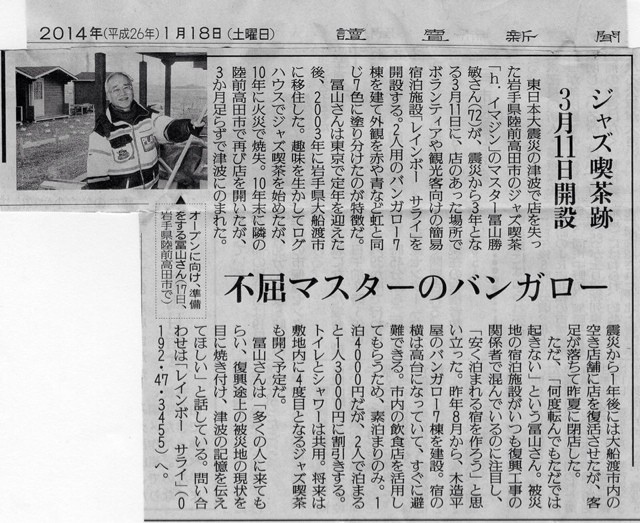 2014年(平成26年)1月18日(土曜日)
讀賣新聞
ジャズ喫茶跡
3月11日開設
不屈マスターのバンガロー
東日本大震災の津波で店を失っ
た岩手県陸前高田市のジャズ喫茶
「h.イマジン」のマスター冨山勝
敏さん(72)が、震災から3年とな
る3月11日に、店のあった場所で
ボランティアや観光客向けの簡易
宿泊施設「レインボー サライ」を
開設する。2人用のバンガロー7
棟を建て、外観を赤や青など虹と同
じ7色に塗り分けたのが特徴だ。
冨山さんは東京で定年を迎えた
後、2003年に岩手県大船渡市
に移住した。趣味を生かしてログ
ハウスでジャズ喫茶を始めたが、
10年に火災で焼失。10年末に隣の
陸前高田市で再び店を開いたが、
3か月足らずで津波にのまれた。
オープンに向け、準備
をする冨山さん(17日、
岩手県陸前高田市で)
震災から1年後には大船渡市内の
空き店舗に店を復活させたが、客
足が落ちて昨夏に閉店した。
ただ、「何度転んでもただでは
起きない」という冨山さん。被災
地の宿泊施設がいつも復興工事の
関係者で混んでいるのに注目し、
「安く泊まれる宿を作ろう」と思
い立った。昨年8月から、木造平
屋のバンガロー7棟を建設。宿の
横は高台になっていて、すぐに避
難できる。市内の飲食店を活用し
てもらうため、素泊まりのみ。1
泊4000円だが、2人で泊まる
と1人3000円に割引きする。
トイレとシャワーは共用。将来は
敷地内に4度目となるジャズ喫茶
も開く予定だ。
冨山さんは「多くの人に来ても
らい、復興途上の被災地の現状を
目に焼き付け、津波の記憶を伝え
てほしい」と話している。問い合
わせは「レインボー サライ」(0
192・47・3455)へ。